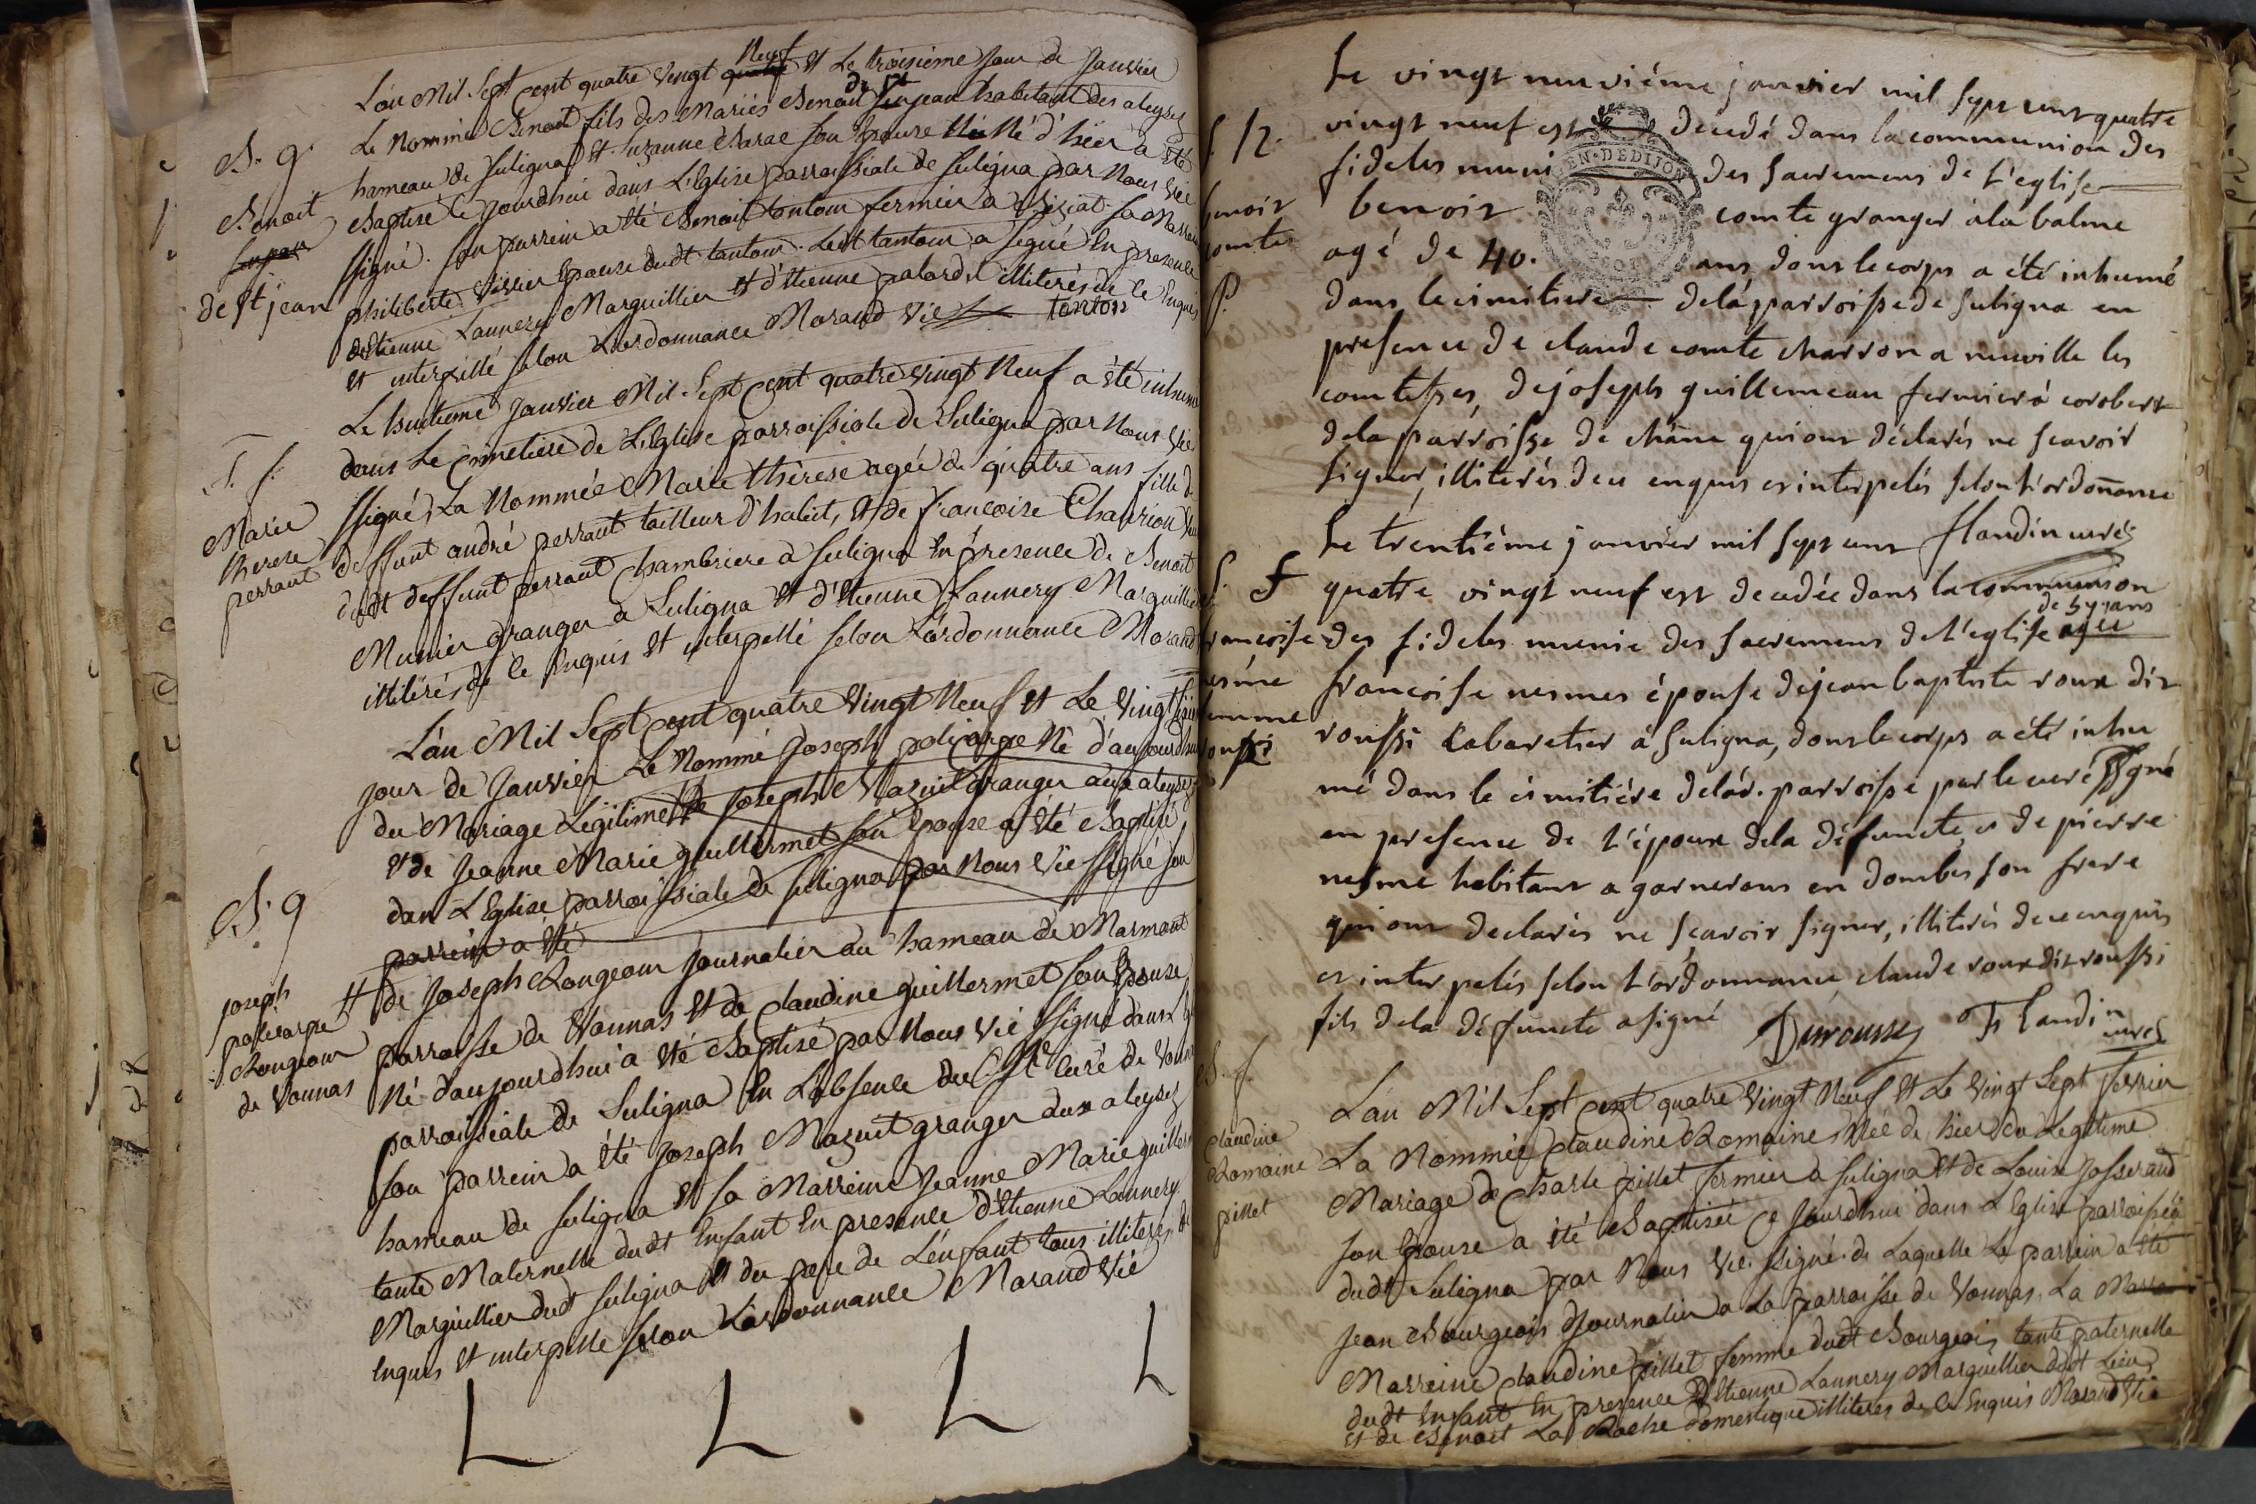 L'an Mil Sept Cent quatre Vingt quatre Neuf Et Le troisieme Jour de Janvier
Le Nommé Benoit fils des Mariés Benoit de St jean habitant des aleysez
B. g.
hameau de Suligna Et Suzanne Barae Son Epouse Né d'hier a été
Benoit
Baptisé Ce jourd'hui dans L'Eglise parroissiale de Suligna par Nous Vic
signé. Son parrein a été Benoit tontom fermier a
de St jean
philiberte Epouse dudt tantom. Ledt tantom a signé En presence
d'Etienne Lannery Marguillier Et d'Etienne palard illiterés de ce Enquis
Et interpellé selon L'ordonnance Morand Vic tonton
Le huitieme Janvier Mil Sept Cent quatre vingt Neuf a été inhumé
dans Le Cimetiere de L'Eglise parroissiale de Suligna par Nous Vic
S. f.
ssigné, La Nommée Marie therese agée de quatre ans fille de
Marie
therese
perraut
deffunt andré perraut tailleur d'habit, Et de francoise Chavrion
dudt deffunt perraut Chambriere a Suligna En presence de Benoit
Munier granger a Suligna Et d'Etienne Lannery Marguillier
illiterés de ce Enquis Et interpellé selon L'ordonnance Morand
L'an Mil Sept Cent quatre Vingt Neuf Et Le Vingt
jour de Janvier Le Nommé Joseph policarpe Né d'aujourdhui
du Mariage Legitime de Joseph Mazuit granger aux aleysez
Et de Jeanne Marie guillermet Son Epouse a été Baptisé
B. g
dan L'Eglise parroissiale de Suligna par Nous Vic ssigné Son
parrein a été
joseph
policarpe
Rongeon
de Vonnas
# de Joseph Rongeon Journalier au hameau de Marmont
parroisse de Vonnas Et de Claudine guillermet Son Epouse
Né d'aujourdhui a été Baptisé par Nous Vic ssigné dans
parroissiale de Suligna En L'absence du Sr Curé de Vonnas
Son parrein a été Joseph Mazuit granger aux aleysez
hameau de Suligna Et Sa Marreine Jeanne Marie guillermet
tante Maternelle dudt Enfant En presence d'Etienne Lannery
Marguillier dudt Suligna Et du pere de L'enfant tous illiterés de
Enquis Et interpellé selon L'ordonnance Morand Vic
Le vingt neuvième janvier mil sept cent quatre
S. 12.
vingt neuf est décedé dans la communion des
fideles muni des sacremens de l'eglise
EN. DE DIJON
benoit
comte
P.
benoit comte granger à la balme
agé de 40. ans, dont le corps a été inhumé
dans le cimitiere de la parroisse de Suligna en
presence de claude comte charron a neuville les
comtesses, de joseph guillemeau fermier à corobert
de la parroisse de chane qui ont déclarés ne scavoir
signer, illiterés de ce enquis et interpelés selon l'ordonance
flandin curé
Le trentiéme janvier mil sept cent
S. f
quatre vingt neuf est decedée dans la communion
francoise
nesme
femme
roussi
des fideles munie des sacremens de l'eglise agée de 59 ans
francoise nesmes épouse de jean baptiste roux dit
roussi Cabaretier à Suligna, dont le corps a été inhu
mé dans le cimitiére de lad. parroisse par le curé ssigné
en presence de l'époux de la défuncte, et de pierre
nesme habitant a garnerans en dombes son frere
qui ont declarés ne scavoir signer, illiterés de ce enquis
et interpelés selon l'ordonnance claude roux dit roussi
fils de la défuncte a signé Duroussy Flandin curé
B. f.
L'an Mil Sept Cent quatre Vingt Neuf Et Le Vingt Sept fevrier
Claudine
Romaine
pillet
La Nommée Claudine Romaine Née de hier du Legitime
Mariage de Charle pillet fermier a Suligna Et de Louise Josserand
Son Epouse a été Baptisée Ce jourd'hui dans L'Eglise parroissia
dudt Suligna par Nous Vic. ssigné. de Laquelle Le parrein a été
jean Bourgeois Journalier a La parroisse de Vonnas, La
Marreine Claudine pillet femme dudt Bourgeois tante paternelle
dudt Enfant En presence d'Etienne Lannery Marguillier dudt Lieu,
Et de Benoit La Roche domestique illiteres de ce Enquis Morand Vic